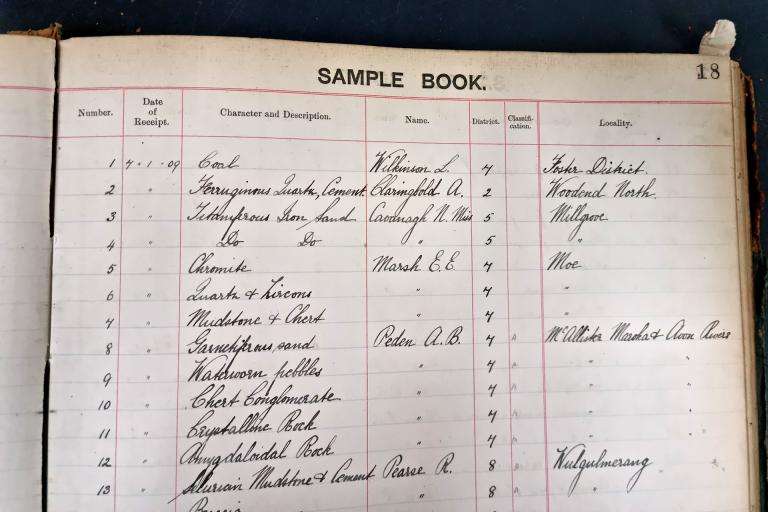 SAMPLE BOOK.
18
Number. Date of Receipt. Character and Description. Name. District. Classifi-cation. Locality.
1 7·1·09 Coal Wilkinson L. 7 Foster District.
2 " Ferruginous Quartz, Cement. Claringbold A. 2 Woodend North.
3 " Titaniferous Iron Sand Cavanagh N. Miss 5 Millgrove
4 " Do Do " 5 "
5 " Chromite Marsh E.E. 7 Moe
6 " Quartz & Zircons " 7 "
7 " Mudstone & Chert " 7 "
8 " Garnetiferous sand Peden A.B. 7 " McAllister Marsha & Avon Rivers
9 " Waterworn pebbles " 7 " " "
10 " Chert Conglomerate " 7 " " "
11 " Crystalline Rock " 7 " " "
12 " Amygdaloidal Rock " 7 " " "
13 " Silurian Mudstone & Cement Pearse R. 8 " Wulgulmerang
" 8 " "